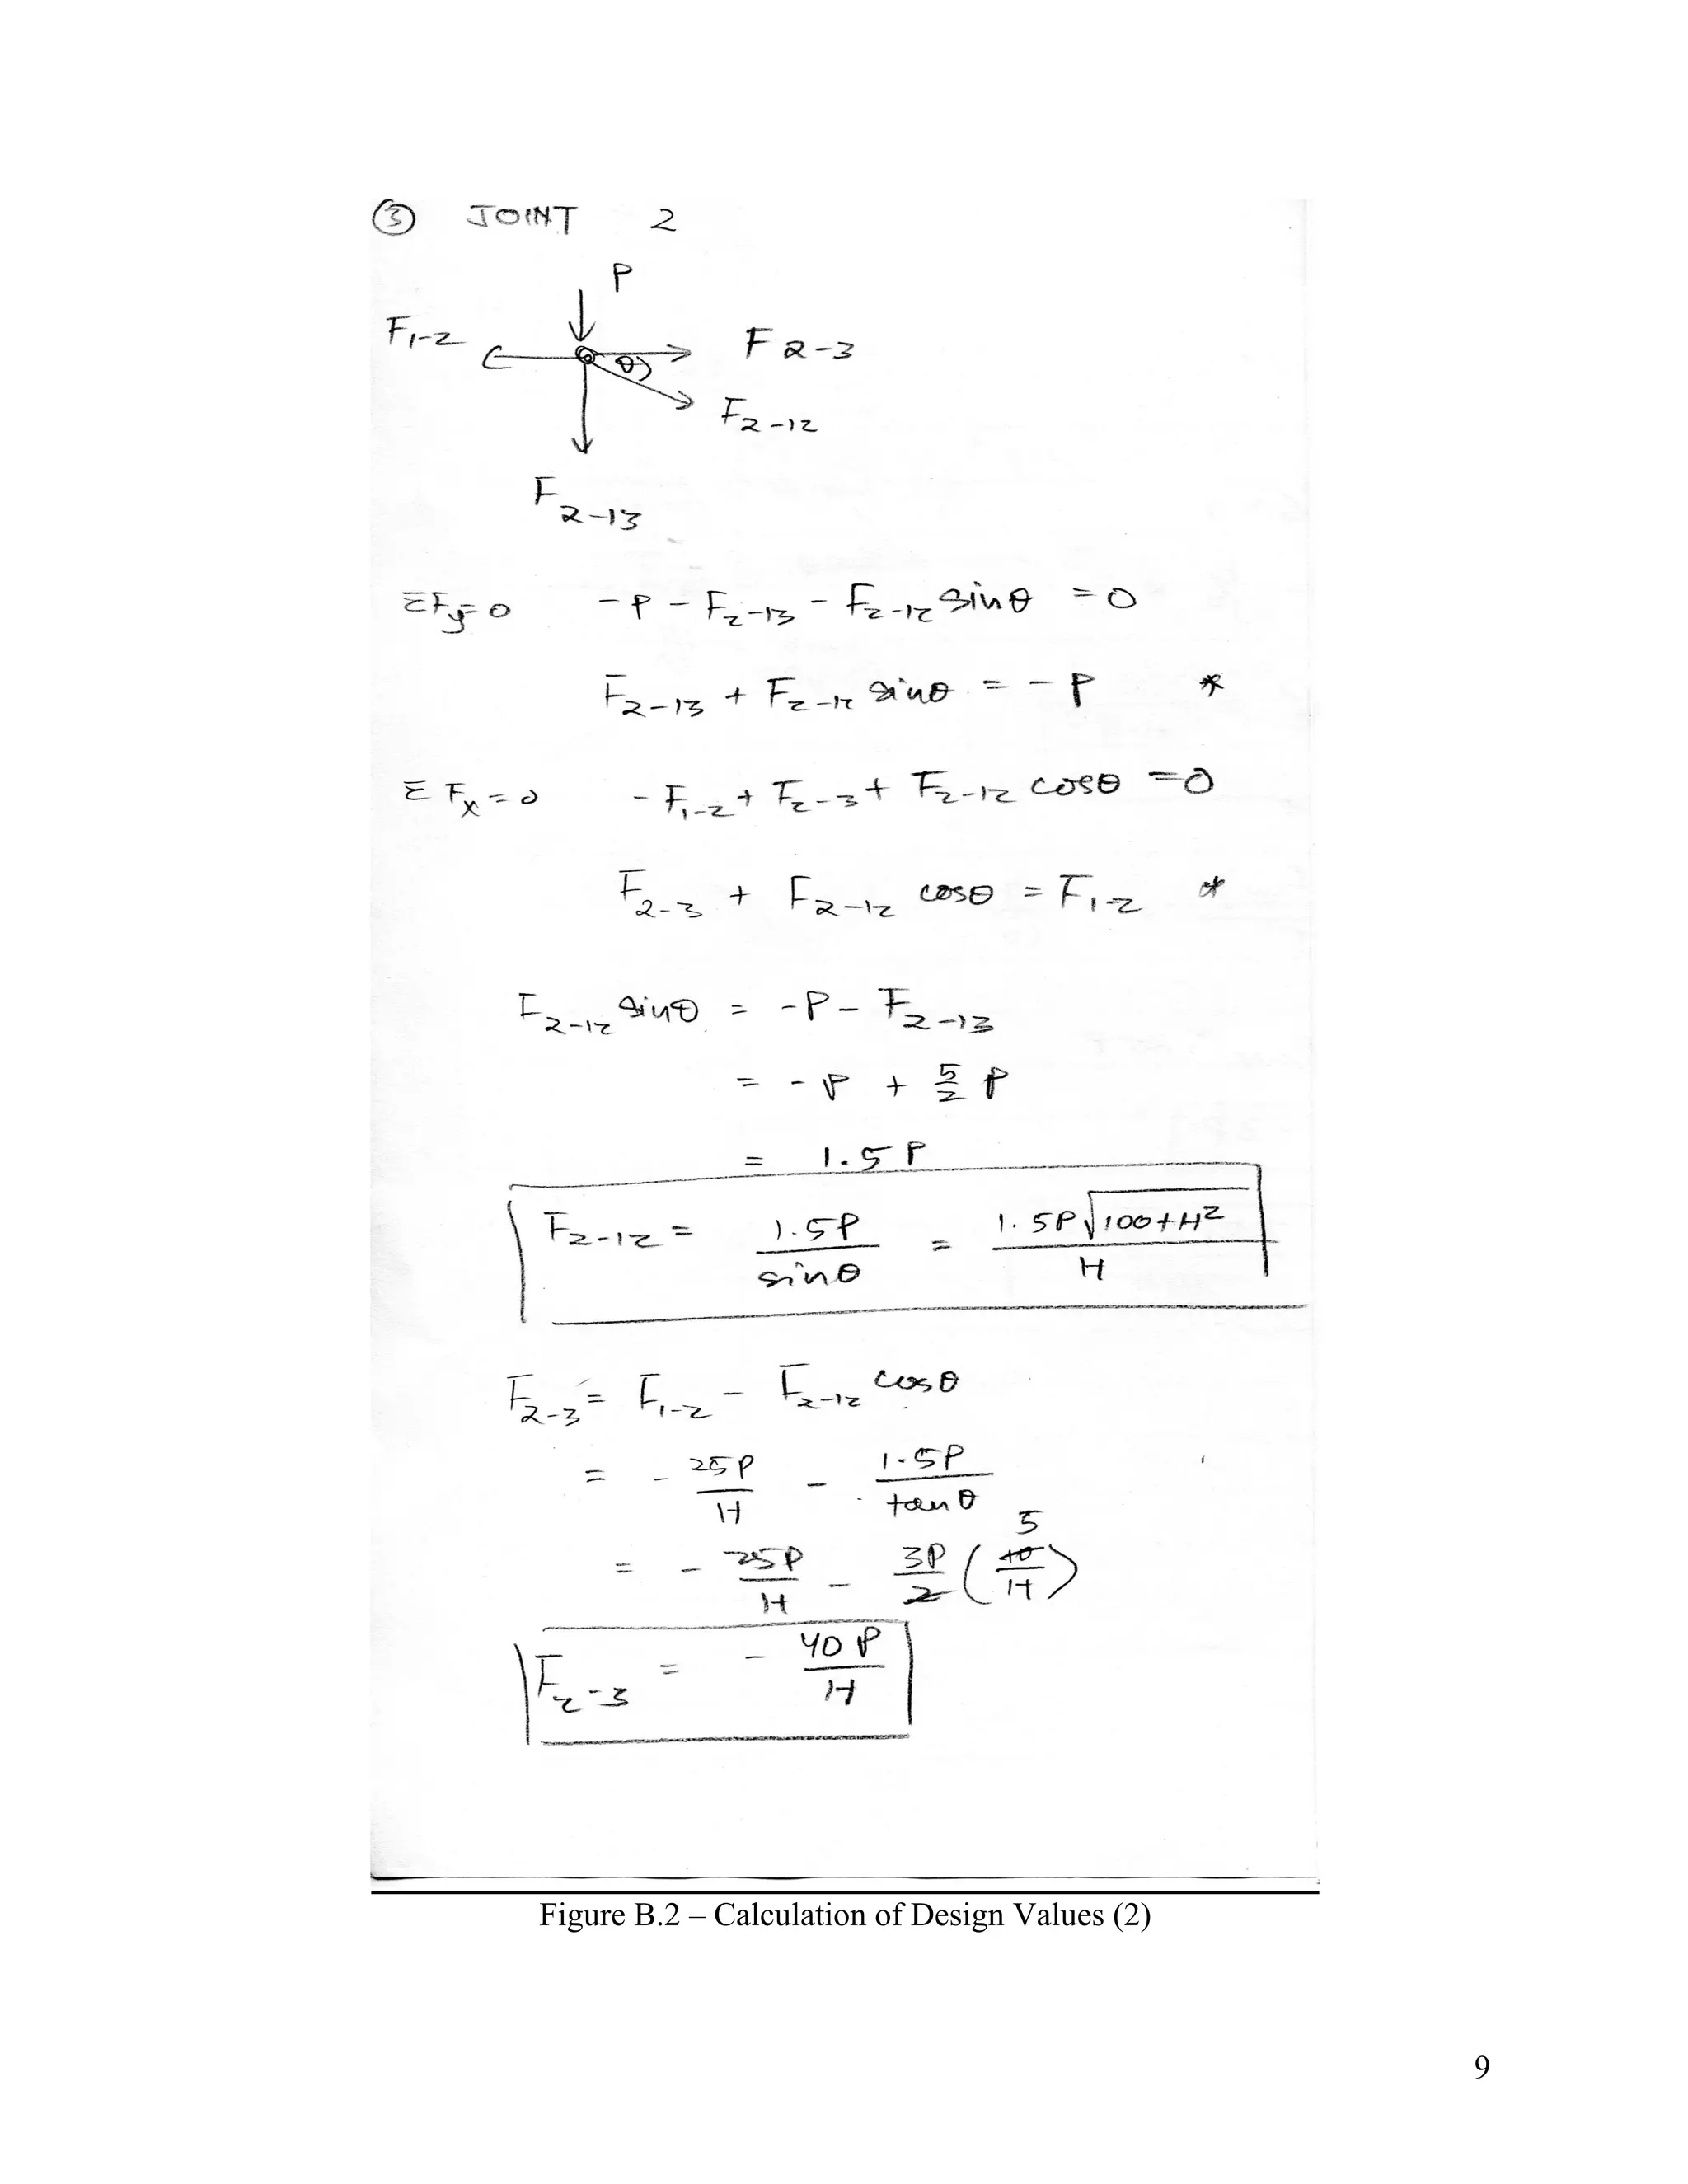 ③ JOINT 2
P
F₁₋₂
F₂₋₃
θ
F₂₋₁₂
F₂₋₁₃
ΣFy=0 -P - F₂₋₁₃ - F₂₋₁₂ sinθ = 0
F₂₋₁₃ + F₂₋₁₂ sinθ = -P *
ΣFx=0 -F₁₋₂ + F₂₋₃ + F₂₋₁₂ cosθ = 0
F₂₋₃ + F₂₋₁₂ cosθ = F₁₋₂ *
F₂₋₁₂ sinθ = -P - F₂₋₁₃
= -P + 5/2 P
= 1.5P
F₂₋₁₂ = 1.5P/sinθ = 1.5P√(100+H²)/H
F₂₋₃ = F₁₋₂ - F₂₋₁₂ cosθ
= - 25P/H - 1.5P/tanθ
5
= - 25P/H - 3P/2 (10/H)
F₂₋₃ = - 40P/H
Figure B.2 – Calculation of Design Values (2)
9